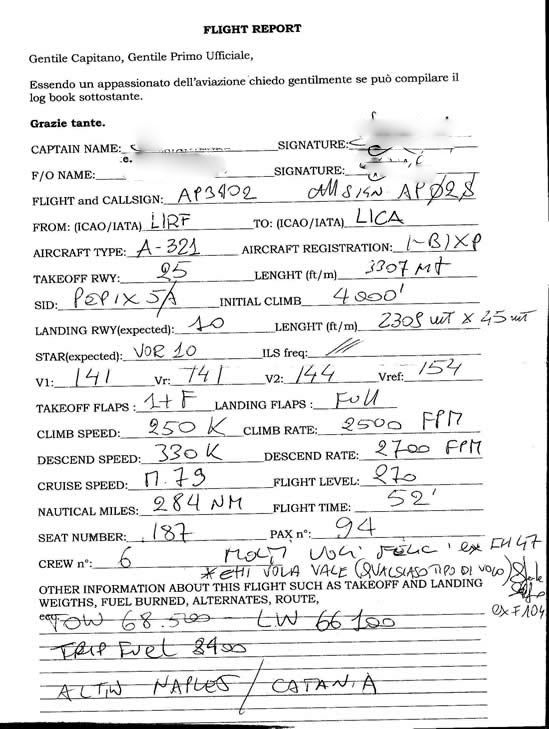 FLIGHT REPORT
Gentile Capitano, Gentile Primo Ufficiale,
Essendo un appassionato dell'aviazione chiedo gentilmente se può compilare il
log book sottostante.
Grazie tante.
CAPTAIN NAME: SIGNATURE:
F/O NAME: SIGNATURE:
FLIGHT and CALLSIGN: AP3402 CALLSIGN AP028
FROM: (ICAO/IATA) LIRF TO: (ICAO/IATA) LICA
AIRCRAFT TYPE: A-321 AIRCRAFT REGISTRATION: I-BIXP
TAKEOFF RWY: 25 LENGHT (ft/m) 3307 MT
SID: PEPIX 5A INITIAL CLIMB 4000'
LANDING RWY(expected): 10 LENGHT (ft/m) 2309 mt x 45 mt
STAR(expected): VOR 10 ILS freq: ///
V1: 141 Vr: 141 V2: 144 Vref: 154
TAKEOFF FLAPS : 1+F LANDING FLAPS : FULL
CLIMB SPEED: 250 K CLIMB RATE: 2500 FPM
DESCEND SPEED: 330 K DESCEND RATE: 2700 FPM
CRUISE SPEED: M.79 FLIGHT LEVEL: 270
NAUTICAL MILES: 284 NM FLIGHT TIME: 52'
SEAT NUMBER: 187 PAX n°: 94
CREW n°: 6 ex
* CHI VOLA VALE (QUALSIASI TIPO DI VOLO)
OTHER INFORMATION ABOUT THIS FLIGHT SUCH AS TAKEOFF AND LANDING
WEIGTHS, FUEL BURNED, ALTERNATES, ROUTE,
ex F104
TOW 68.500 LW 66100
TRIP FUEL 2400
ALTN NAPLES / CATANIA